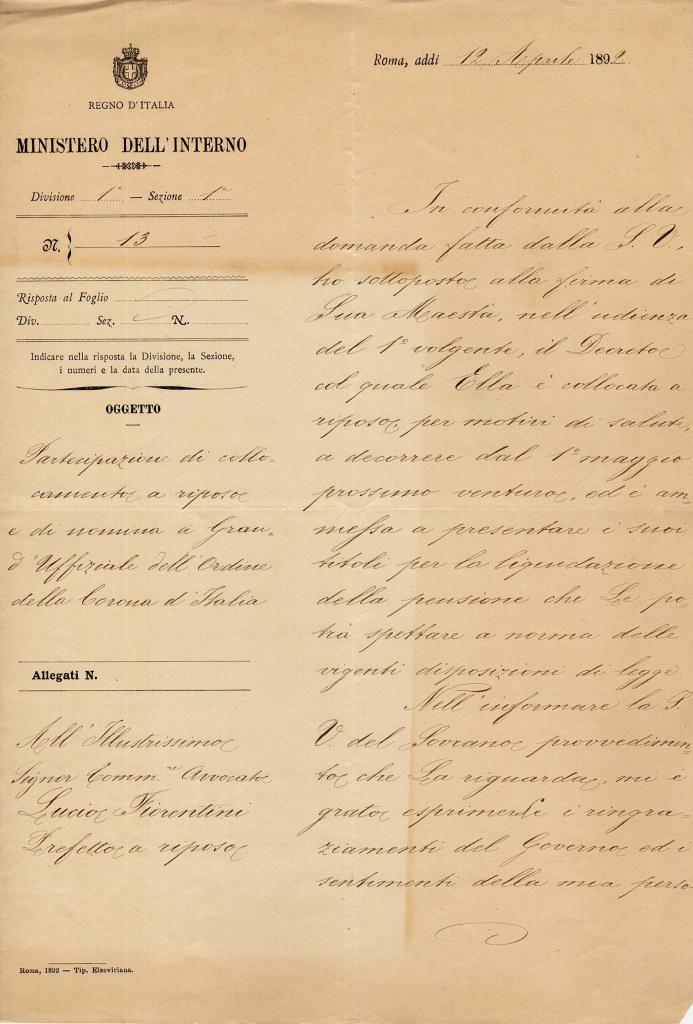 REGNO D'ITALIA
MINISTERO DELL'INTERNO
Divisione 1ª — Sezione 1ª
N. 13
Risposta al Foglio
Div. Sez. N.
Indicare nella risposta la Divisione, la Sezione,
i numeri e la data della presente.
OGGETTO
Partecipazione di collo-
camento a riposo
e di nomina a Gran-
d'Uffiziale dell'Ordine
della Corona d'Italia
Allegati N.
All'Illustrissimo
Signor Comm.re Avvocato
Lucio Fiorentini
Prefetto a riposo
Roma, 1892 — Tip. Elzeviriana.
Roma, addì 12 Aprile 1892
In conformità alla
domanda fatta dalla S. V.,
ho sottoposto alla firma di
Sua Maestà, nell'udienza
del 1° volgente, il Decreto
col quale Ella è collocata a
riposo, per motivi di salute,
a decorrere dal 1° maggio
prossimo venturo, ed è am-
messa a presentare i suoi
titoli per la liquidazione
della pensione che Le po-
trà spettare a norma delle
vigenti disposizioni di legge.
Nell'informare la S.
V. del Sovrano provvedimen-
to che La riguarda, mi è
grato esprimerLe i ringra-
ziamenti del Governo ed i
sentimenti della mia perso